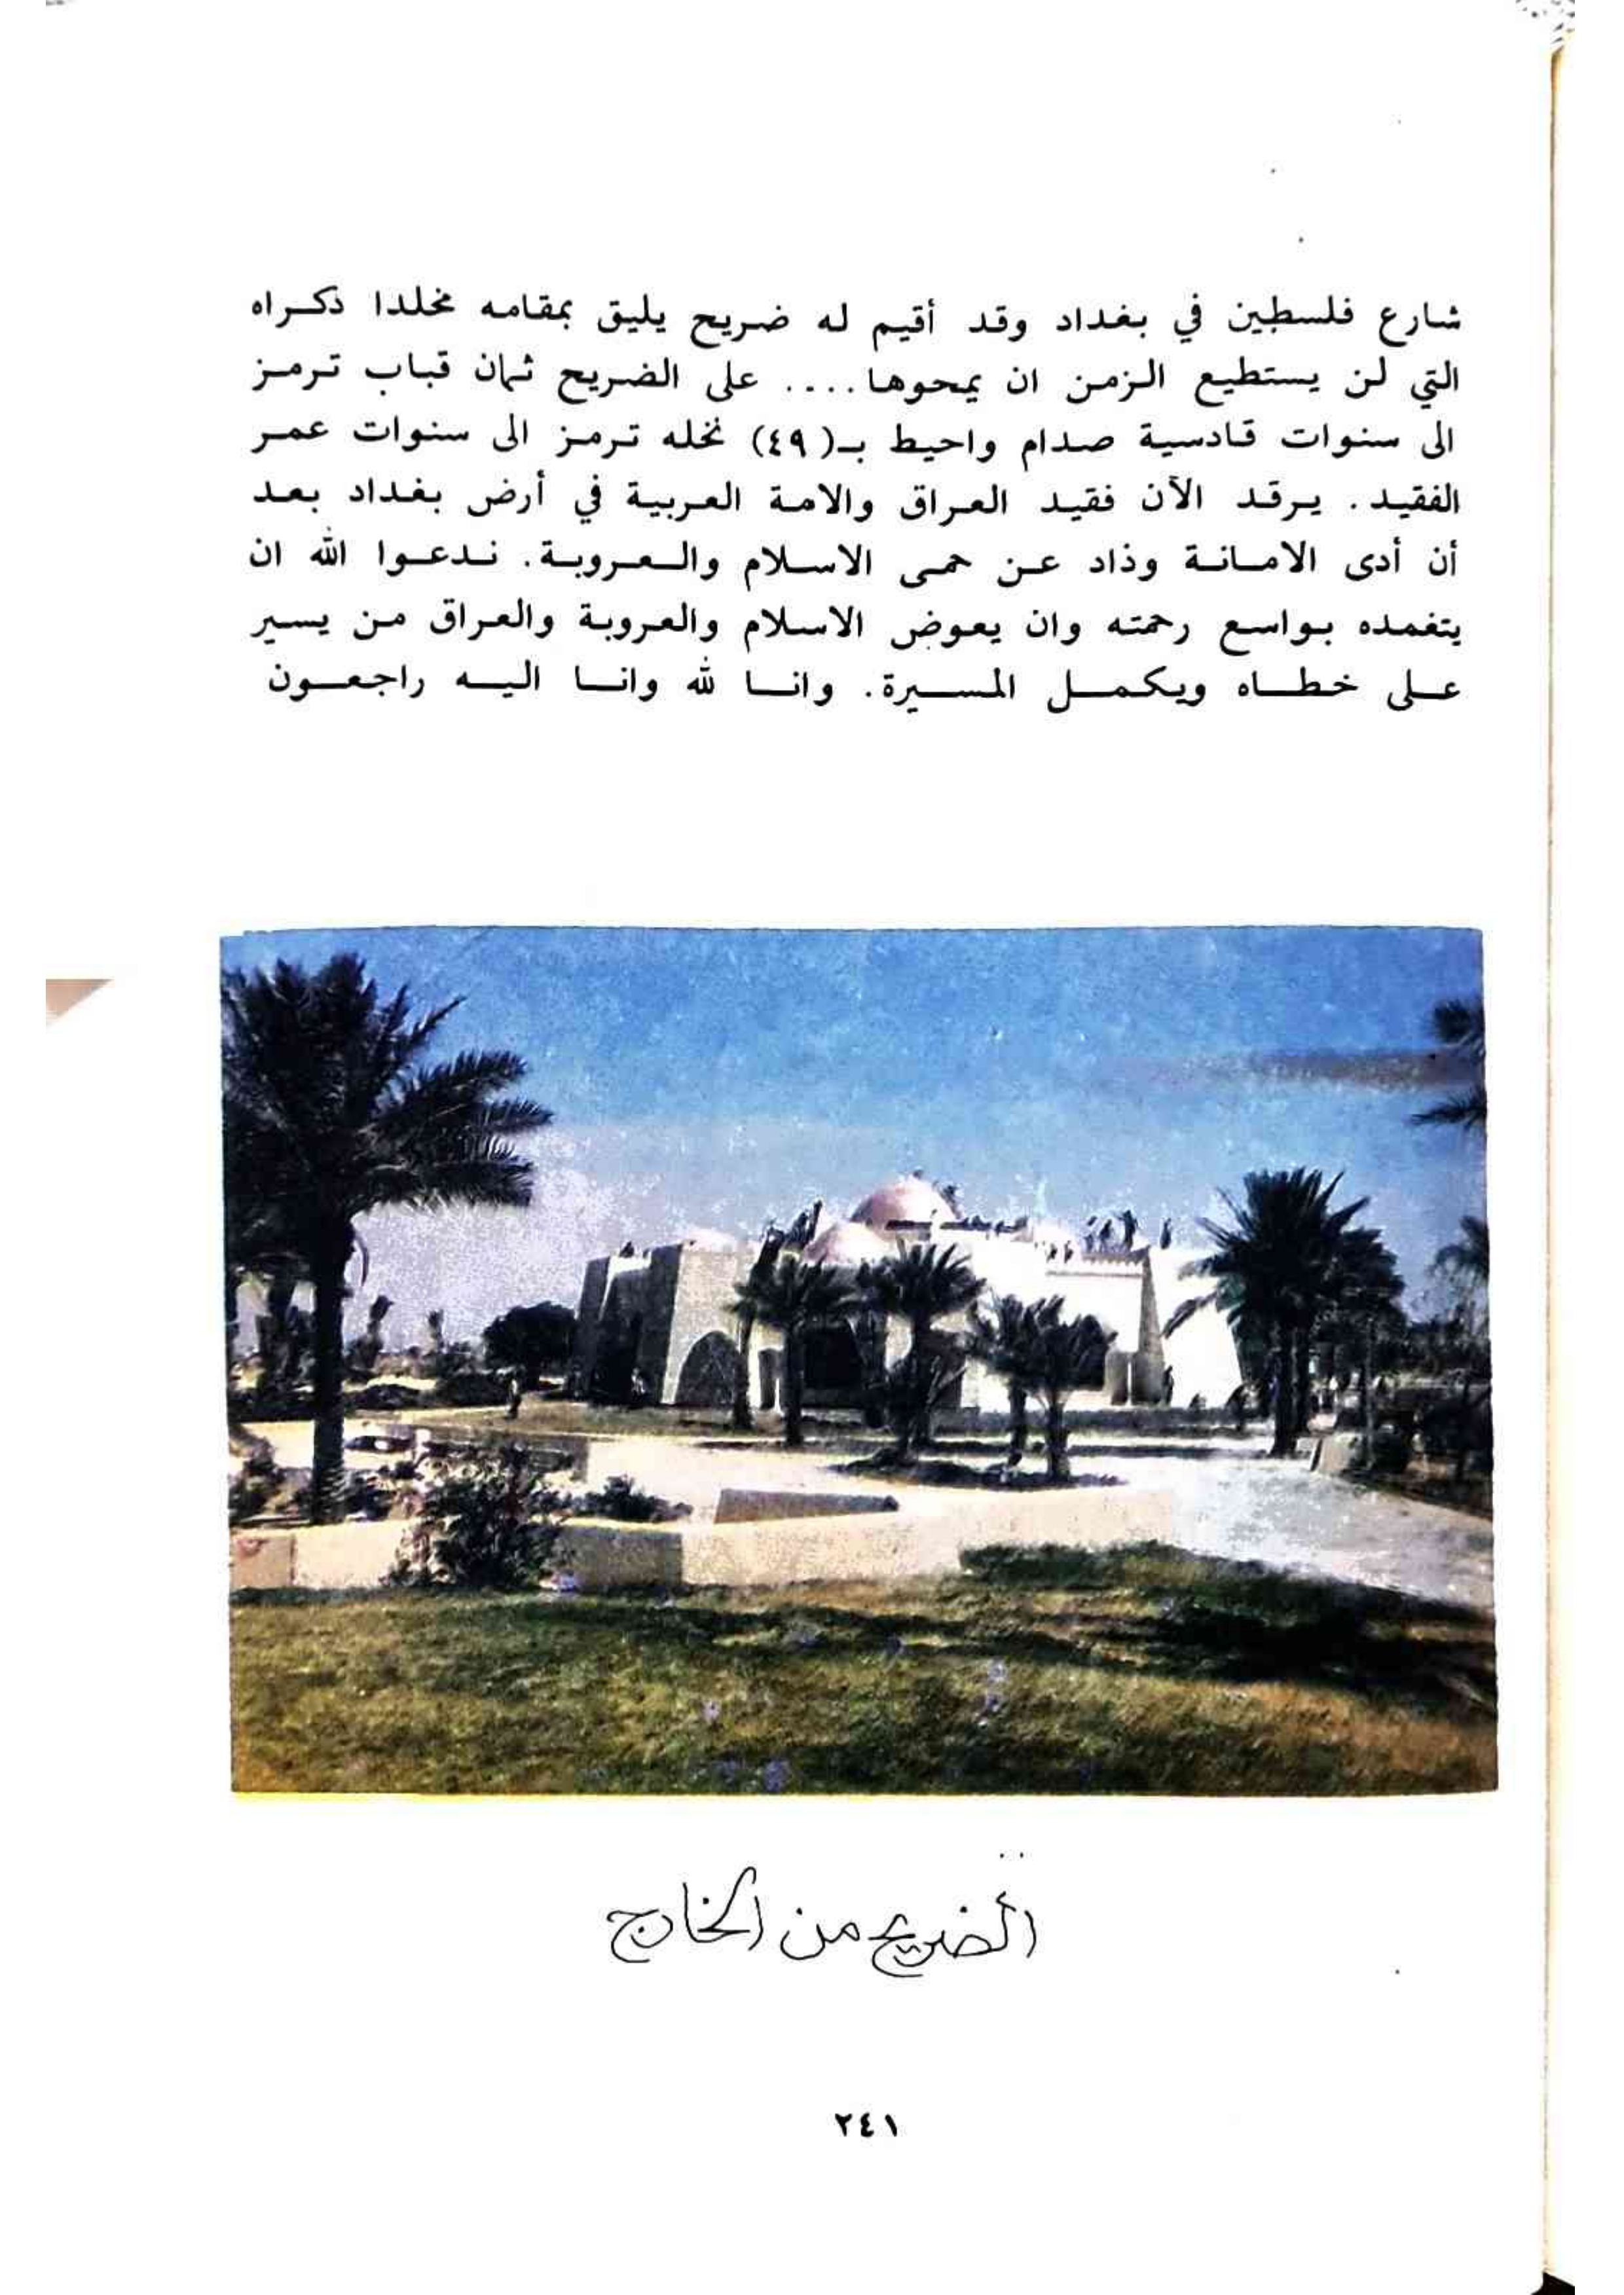 شارع فلسطين في بغداد وقد أقيم له ضريح يليق بمقامه مخلدا ذكراه
التي لن يستطيع الزمن ان يمحوها.... على الضريح ثمان قباب ترمز
الى سنوات قادسية صدام واحيط بـ(٤٩) نخله ترمز الى سنوات عمر
الفقيد. يرقد الآن فقيد العراق والامة العربية في أرض بغداد بعد
أن أدى الامانة وذاد عن حمى الاسلام والعروبة. ندعوا الله ان
يتغمده بواسع رحمته وان يعوض الاسلام والعروبة والعراق من يسير
على خطاه ويكمل المسيرة. وانا لله وانا اليه راجعون
الضريح من الخارج
٢٤١